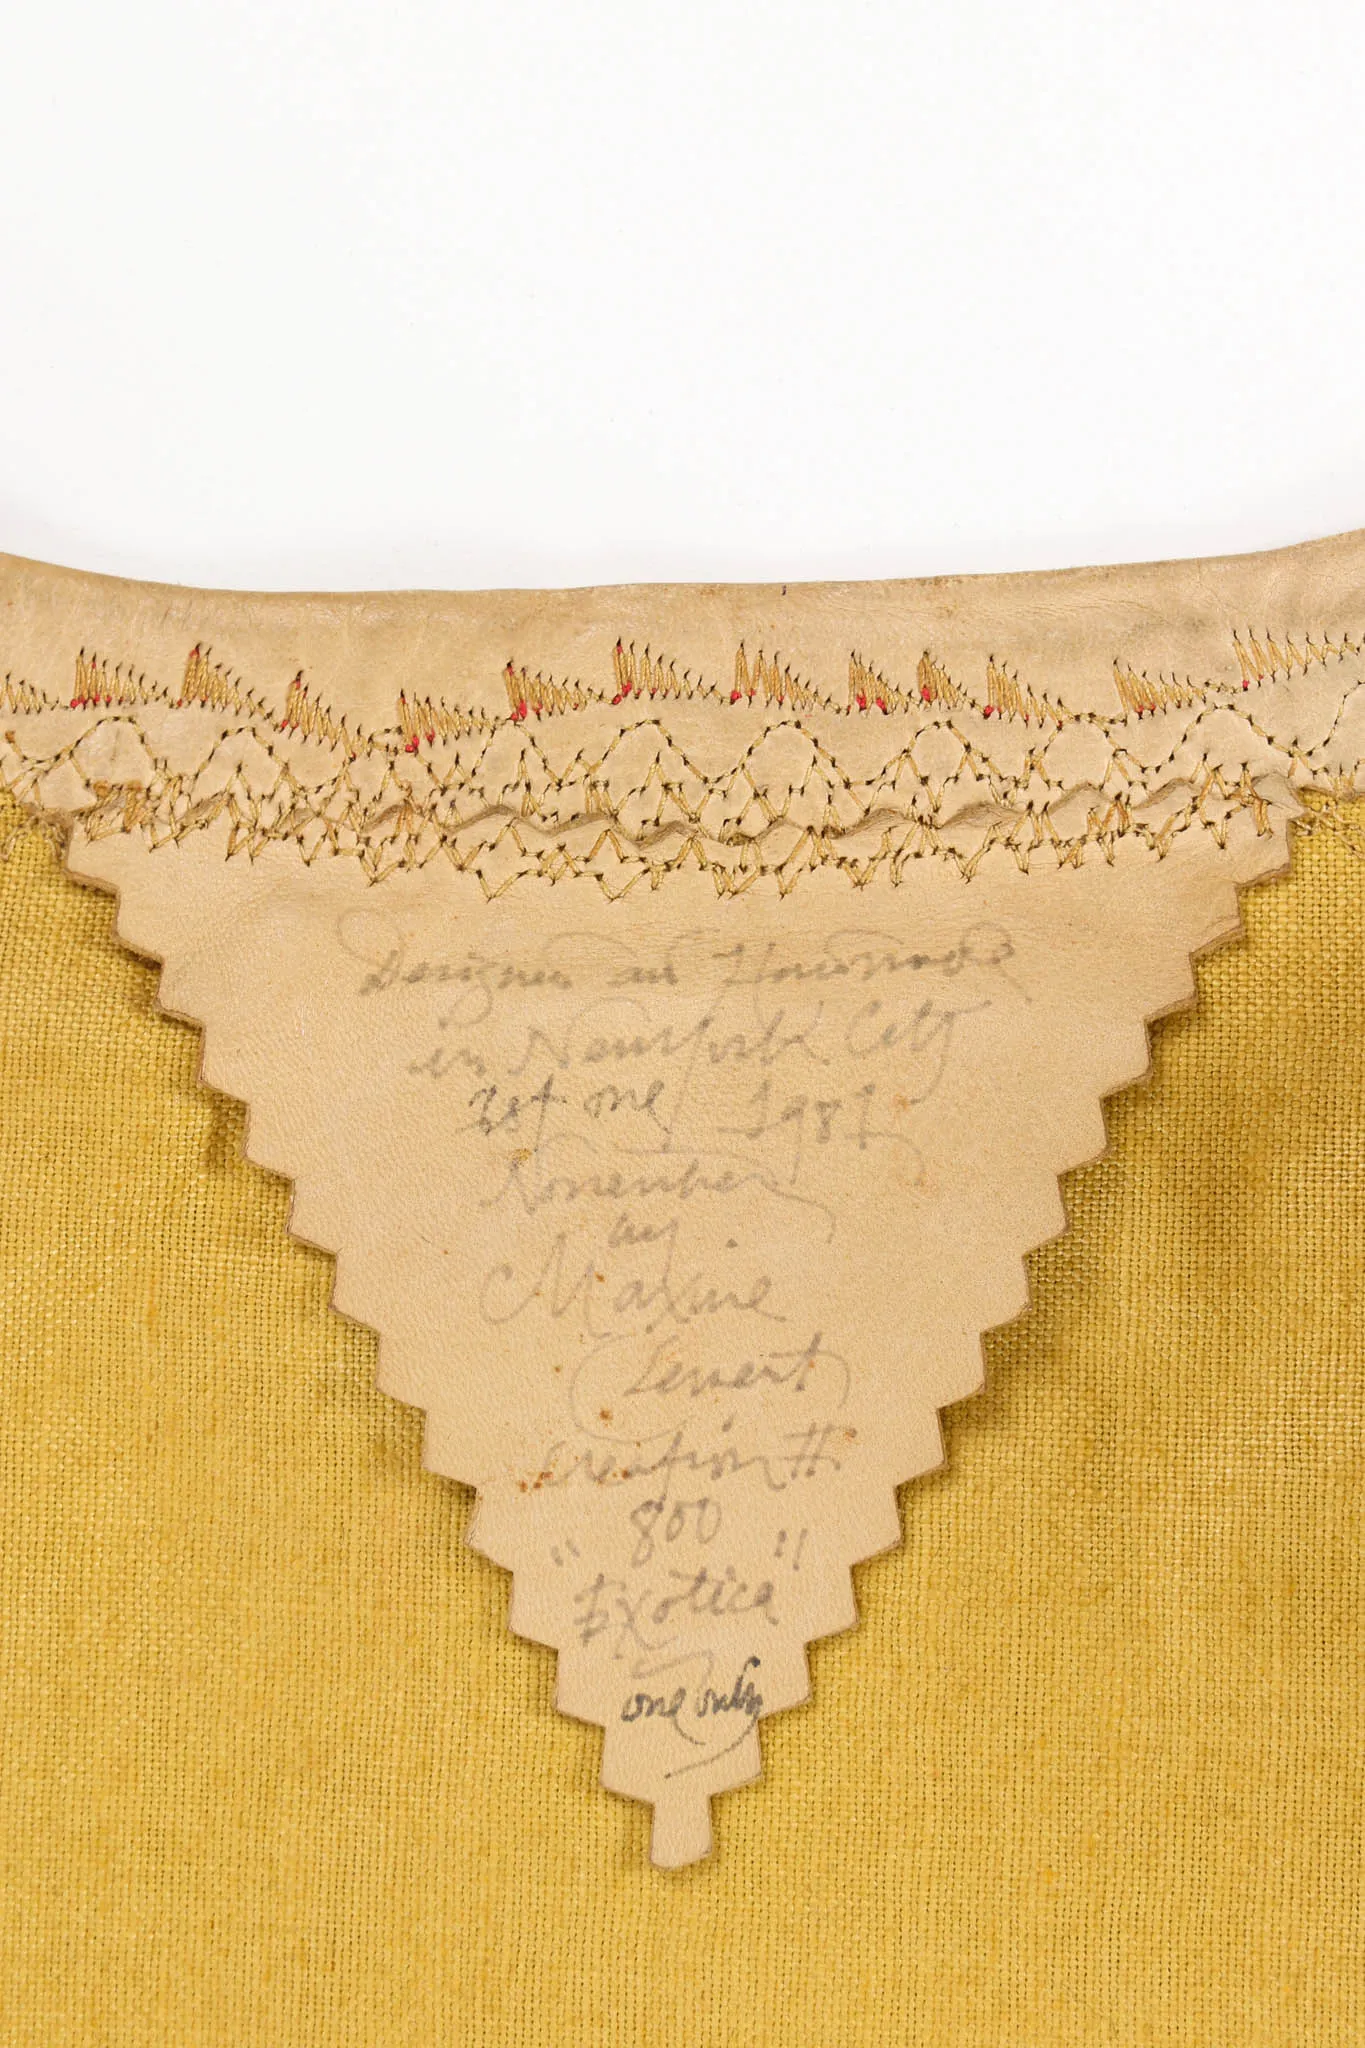 Designed and Handmade
in New York City
1981
November
by
Maxine
Lenert
creation #
800
"Exotica"
one only